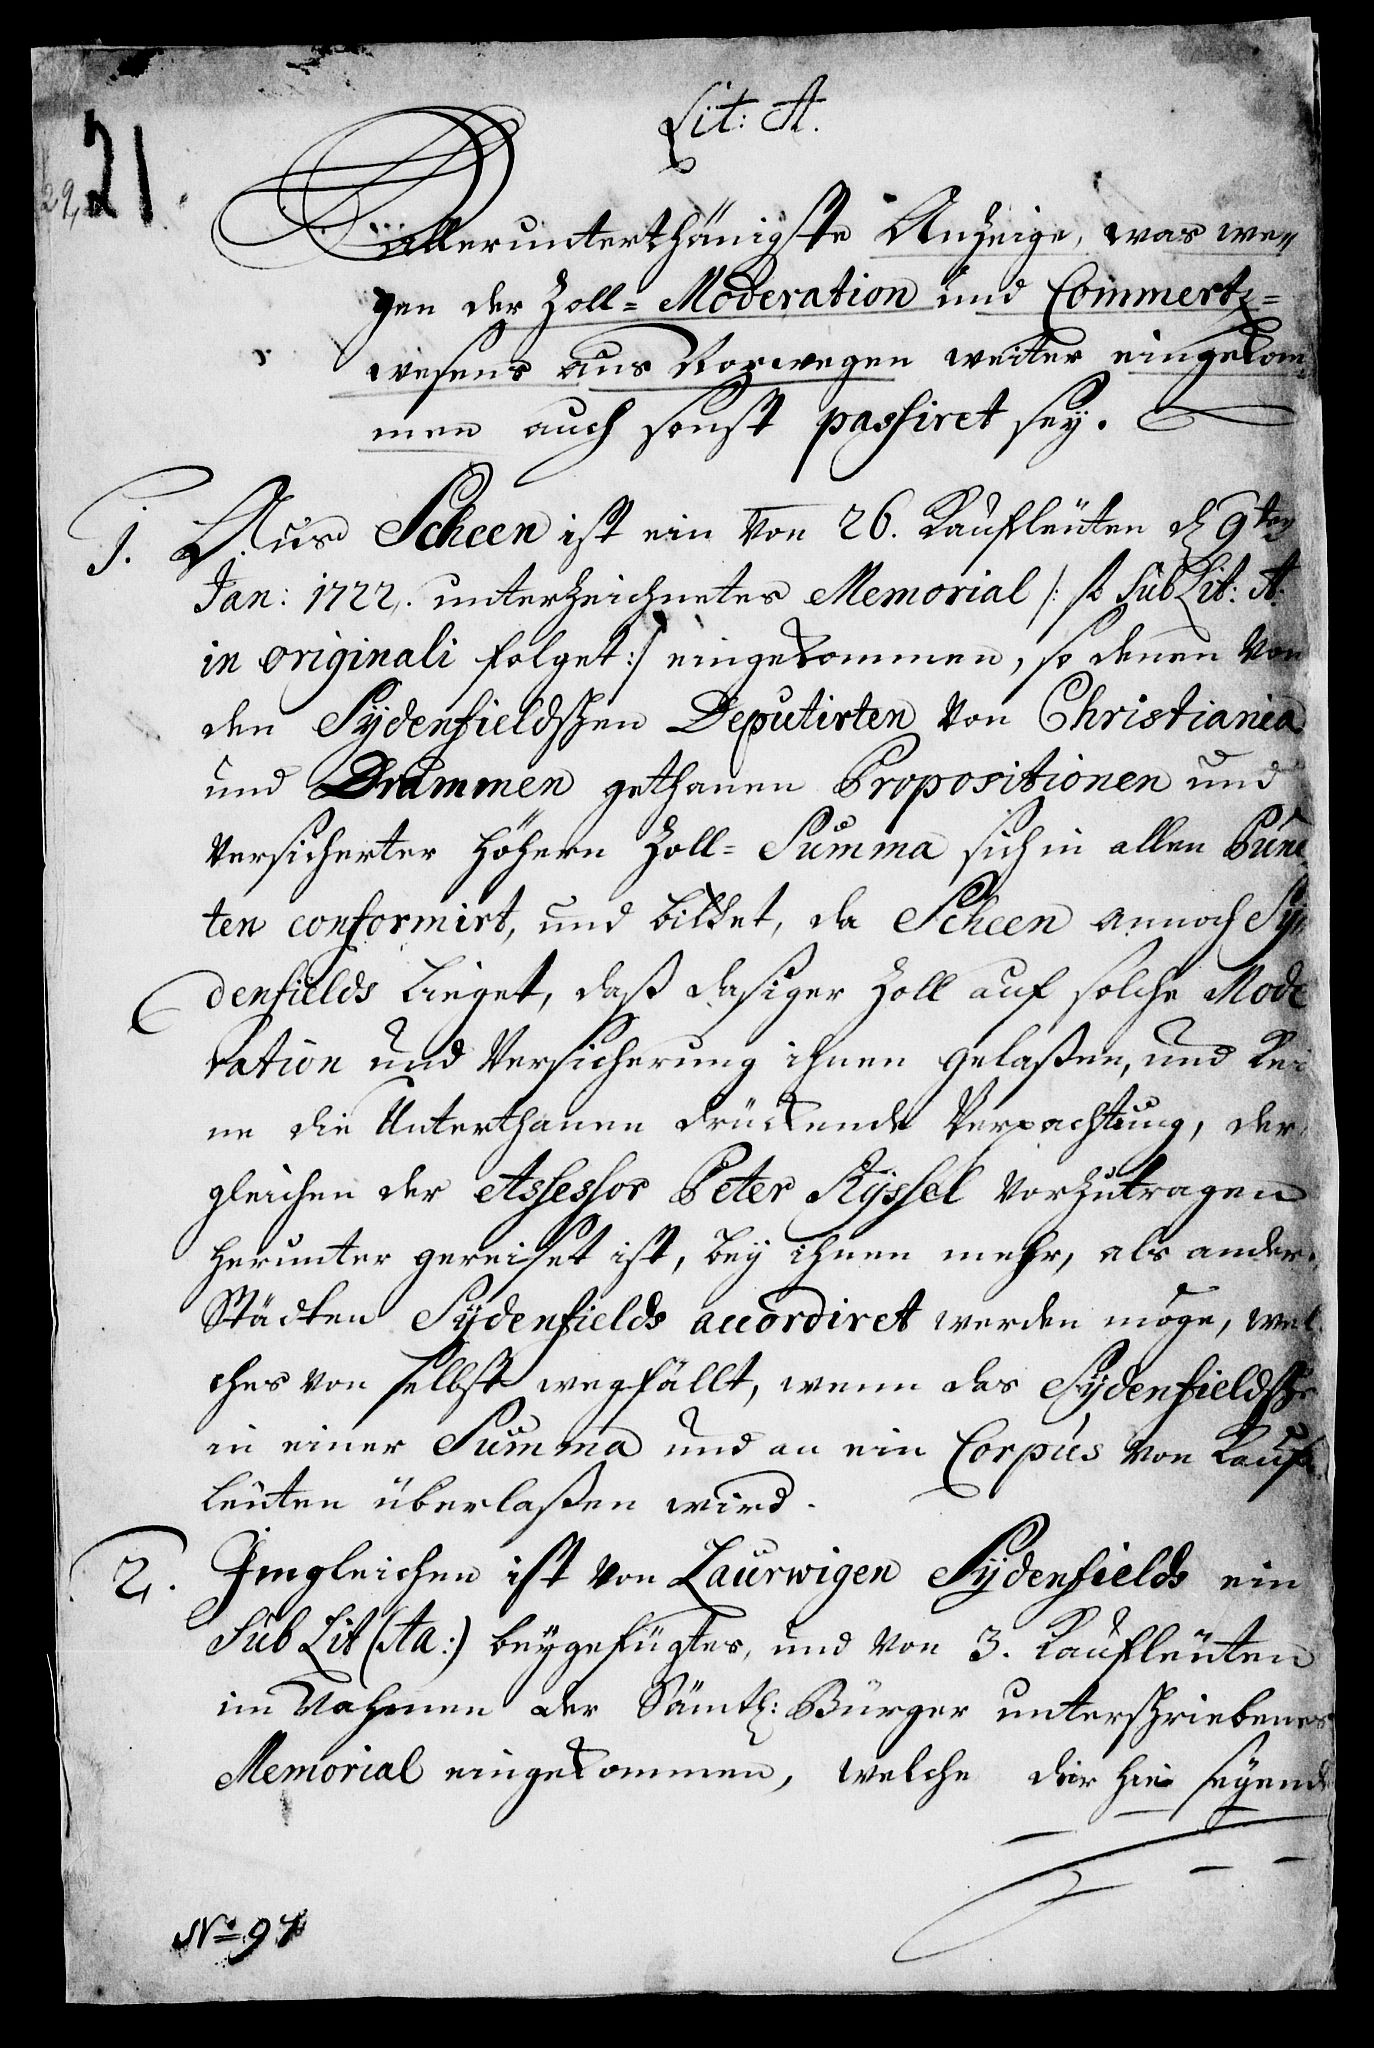 Lit: A.
21.
29,
Allerunterthänigste Anzeige, was we„
gen der Zoll= Moderation und Commertz=
wesens aus Norwegen weiter eingekom„
men auch sonst passiret sey.
1. Aus Scheen ist ein von 26. Kaufleüten d 9ten
Jan: 1722. unterzeichnetes Memorial /: so sub Lit: A:
in originali folget :/ eingekommen, so denen von
den Sÿdenfieldschen Deputirten von Christiania
und Drammen gethanen Propositionen und
versicherter höhern Zoll= Summa sich in allen Punc„
ten conformirt, und bittet, da Scheen annoch Sÿ„
denfields lieget, daß dasiger Zoll auf solche Mode
ration und Versicherung ihnen gelaßen, und kei
ne die Unterthanen drückende Verpachtung, der„
gleichen der Assessor Peter Rÿssel vorzutragen
herunter gereiset ist, beÿ ihnen mehr, als andern
Städten Sÿdenfields accordiret werden möge, wel
ches von selbst wegfällt, wenn das Sÿdenfieldsche
in einer Summa und an ein Corpus von Kauf„
leuten überlaßen wird.
2. Imgleichen ist von Laurwigen Sÿdenfields ein
sub Lit (Aa:) beÿgefügtes, und von 3. Kaufleüten
im Nahmen der Sämtl: Bürger unterschriebenes
Memorial eingekommen, welche der hie seÿende
No 97